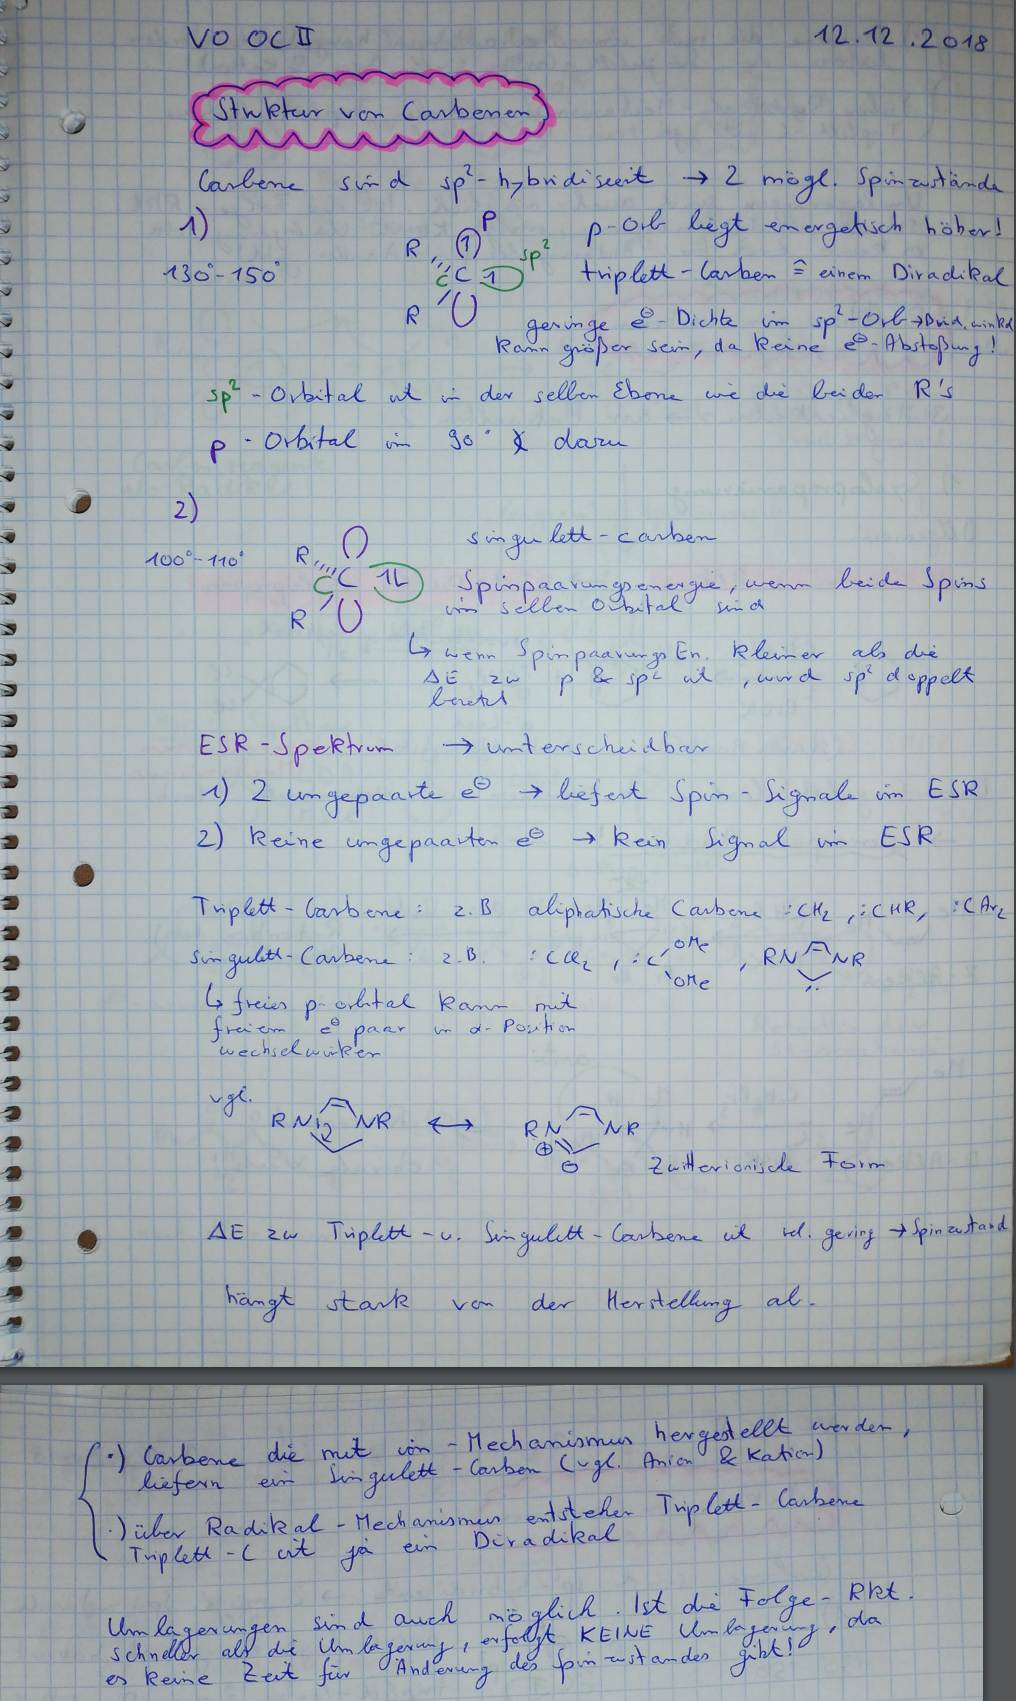 VO OC II 12.12.2018
Struktur von Carbenen
Carbene sind sp²-hybridisiert → 2 mögl. Spinzustände
1) P p-Orb liegt energetisch höher!
R 1 sp²
130°-150° C C 1 triplett-Carben ≙ einem Diradikal
R geringe e⊖-Dichte im sp²-Orb → Bind.winkel
kann größer sein, da keine e⊖-Abstoßung!
sp²-Orbital ist in der selben Ebene wie die beiden R's
p-Orbital im 90° ∡ dazu
2)
singulett-carben
100°-110° R C C 1L Spinpaarungsenergie, wenn beide Spins
R im selben Orbital sind
↳ wenn SpinpaarungsEn. kleiner als die
ΔE zw p & sp² ist, wird sp² doppelt
besetzt
ESR-Spektrum → unterscheidbar
1) 2 ungepaarte e⊖ → liefert Spin-Signale im ESR
2) keine ungepaarten e⊖ → kein Signal im ESR
Triplett-Carbene: z.B aliphatische Carbene :CH₂, :CHR, :CAr₂
singulett-Carbene: z.B. :CCl₂, :C OMe OMe, RN NR :
↳ freies p-orbital kann mit
freiem e⊖ paar in α-Position
wechselwirken
vgl.
RN: NR ↔ RN NR
⊕ ⊖
Zwitterionische Form
ΔE zw Triplett- u. Singulett-Carbene ist rel. gering → Spinzustand
hängt stark von der Herstellung ab.
·) Carbene die mit ion-Mechanismus hergestellt werden,
liefern ein Singulett-Carben (vgl. Anion & Kation)
·) über Radikal-Mechanismus entstehen Triplett-Carbene
Triplett-C ist ja ein Diradikal
Umlagerungen sind auch möglich. Ist die Folge-Rkt.
schneller als die Umlagerung, erfolgt KEINE Umlagerung, da
es keine Zeit für Änderung des Spinzustandes gibt!